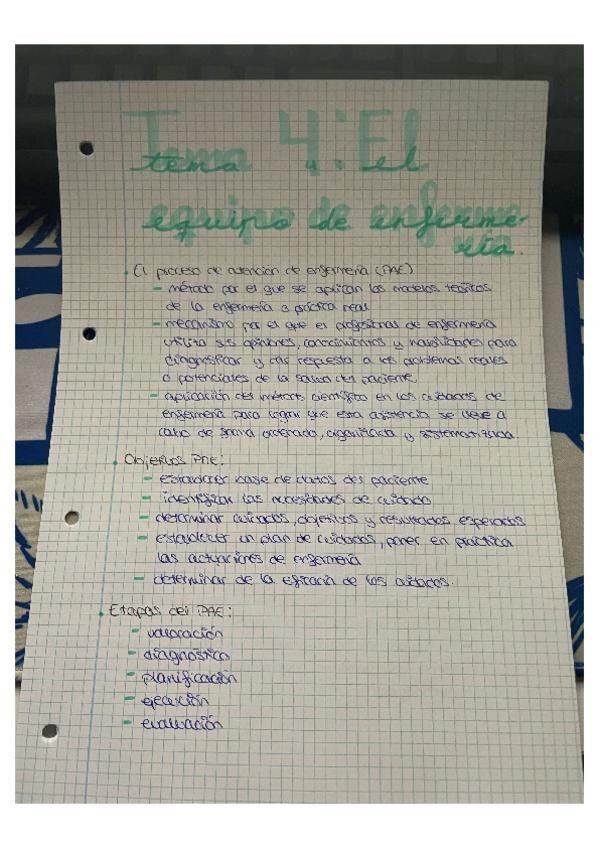 Tema 4: El
tema 4: el
equipo de enferme-
ría.
El proceso de atención de enfermería (PAE)
- método por el que se aplican los modelos teóricos
de la enfermería a práctica real
- mecanismo por el que el profesional de enfermería
utiliza sus opiniones, conocimientos y habilidades para
diagnosticar y dar respuesta a los problemas reales
o potenciales de la salud del paciente
- aplicación del método científico en los cuidados de
enfermería para lograr que esta asistencia se lleve a
cabo de forma ordenada, organizada y sistematizada.
Objetivos PAE:
- establecer base de datos del paciente
- identificar las necesidades de cuidado
- determinar cuidados, objetivos y resultados esperados
- establecer un plan de cuidados, poner en práctica
las actuaciones de enfermería
- determinar de la eficacia de los cuidados.
Etapas del PAE:
- valoración
- diagnóstico
- planificación
- ejecución
- evaluación